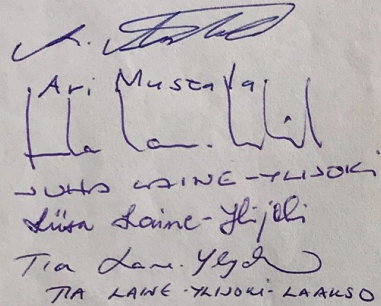 Ari Mustala
JUHA LAINE-YLIJOKI
Liisa Laine-Ylijoki
Tia Laine-Ylijoki
TIA LAINE-YLIJOKI-LAAKSO